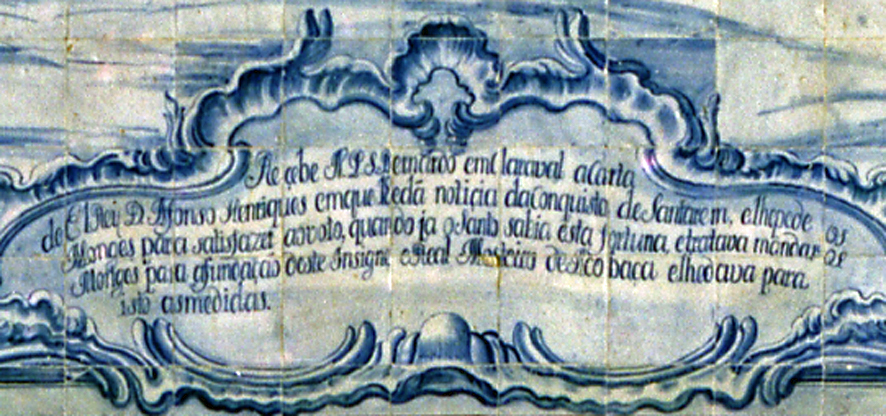 Recebe N. P. S. Bernardo em Claraval a Carta
de ElRey D. Affonso Henriques em que lhe dá noticia da Conquista de Santarem, e lhe pede os
Monges para satisfazer ao voto, quando ja o Santo sabia esta fortuna, e tratava mandar os
Monges para a fundação deste insigne e Real Mosteiro de Alcobaça e lhe dava para
isto as medidas.